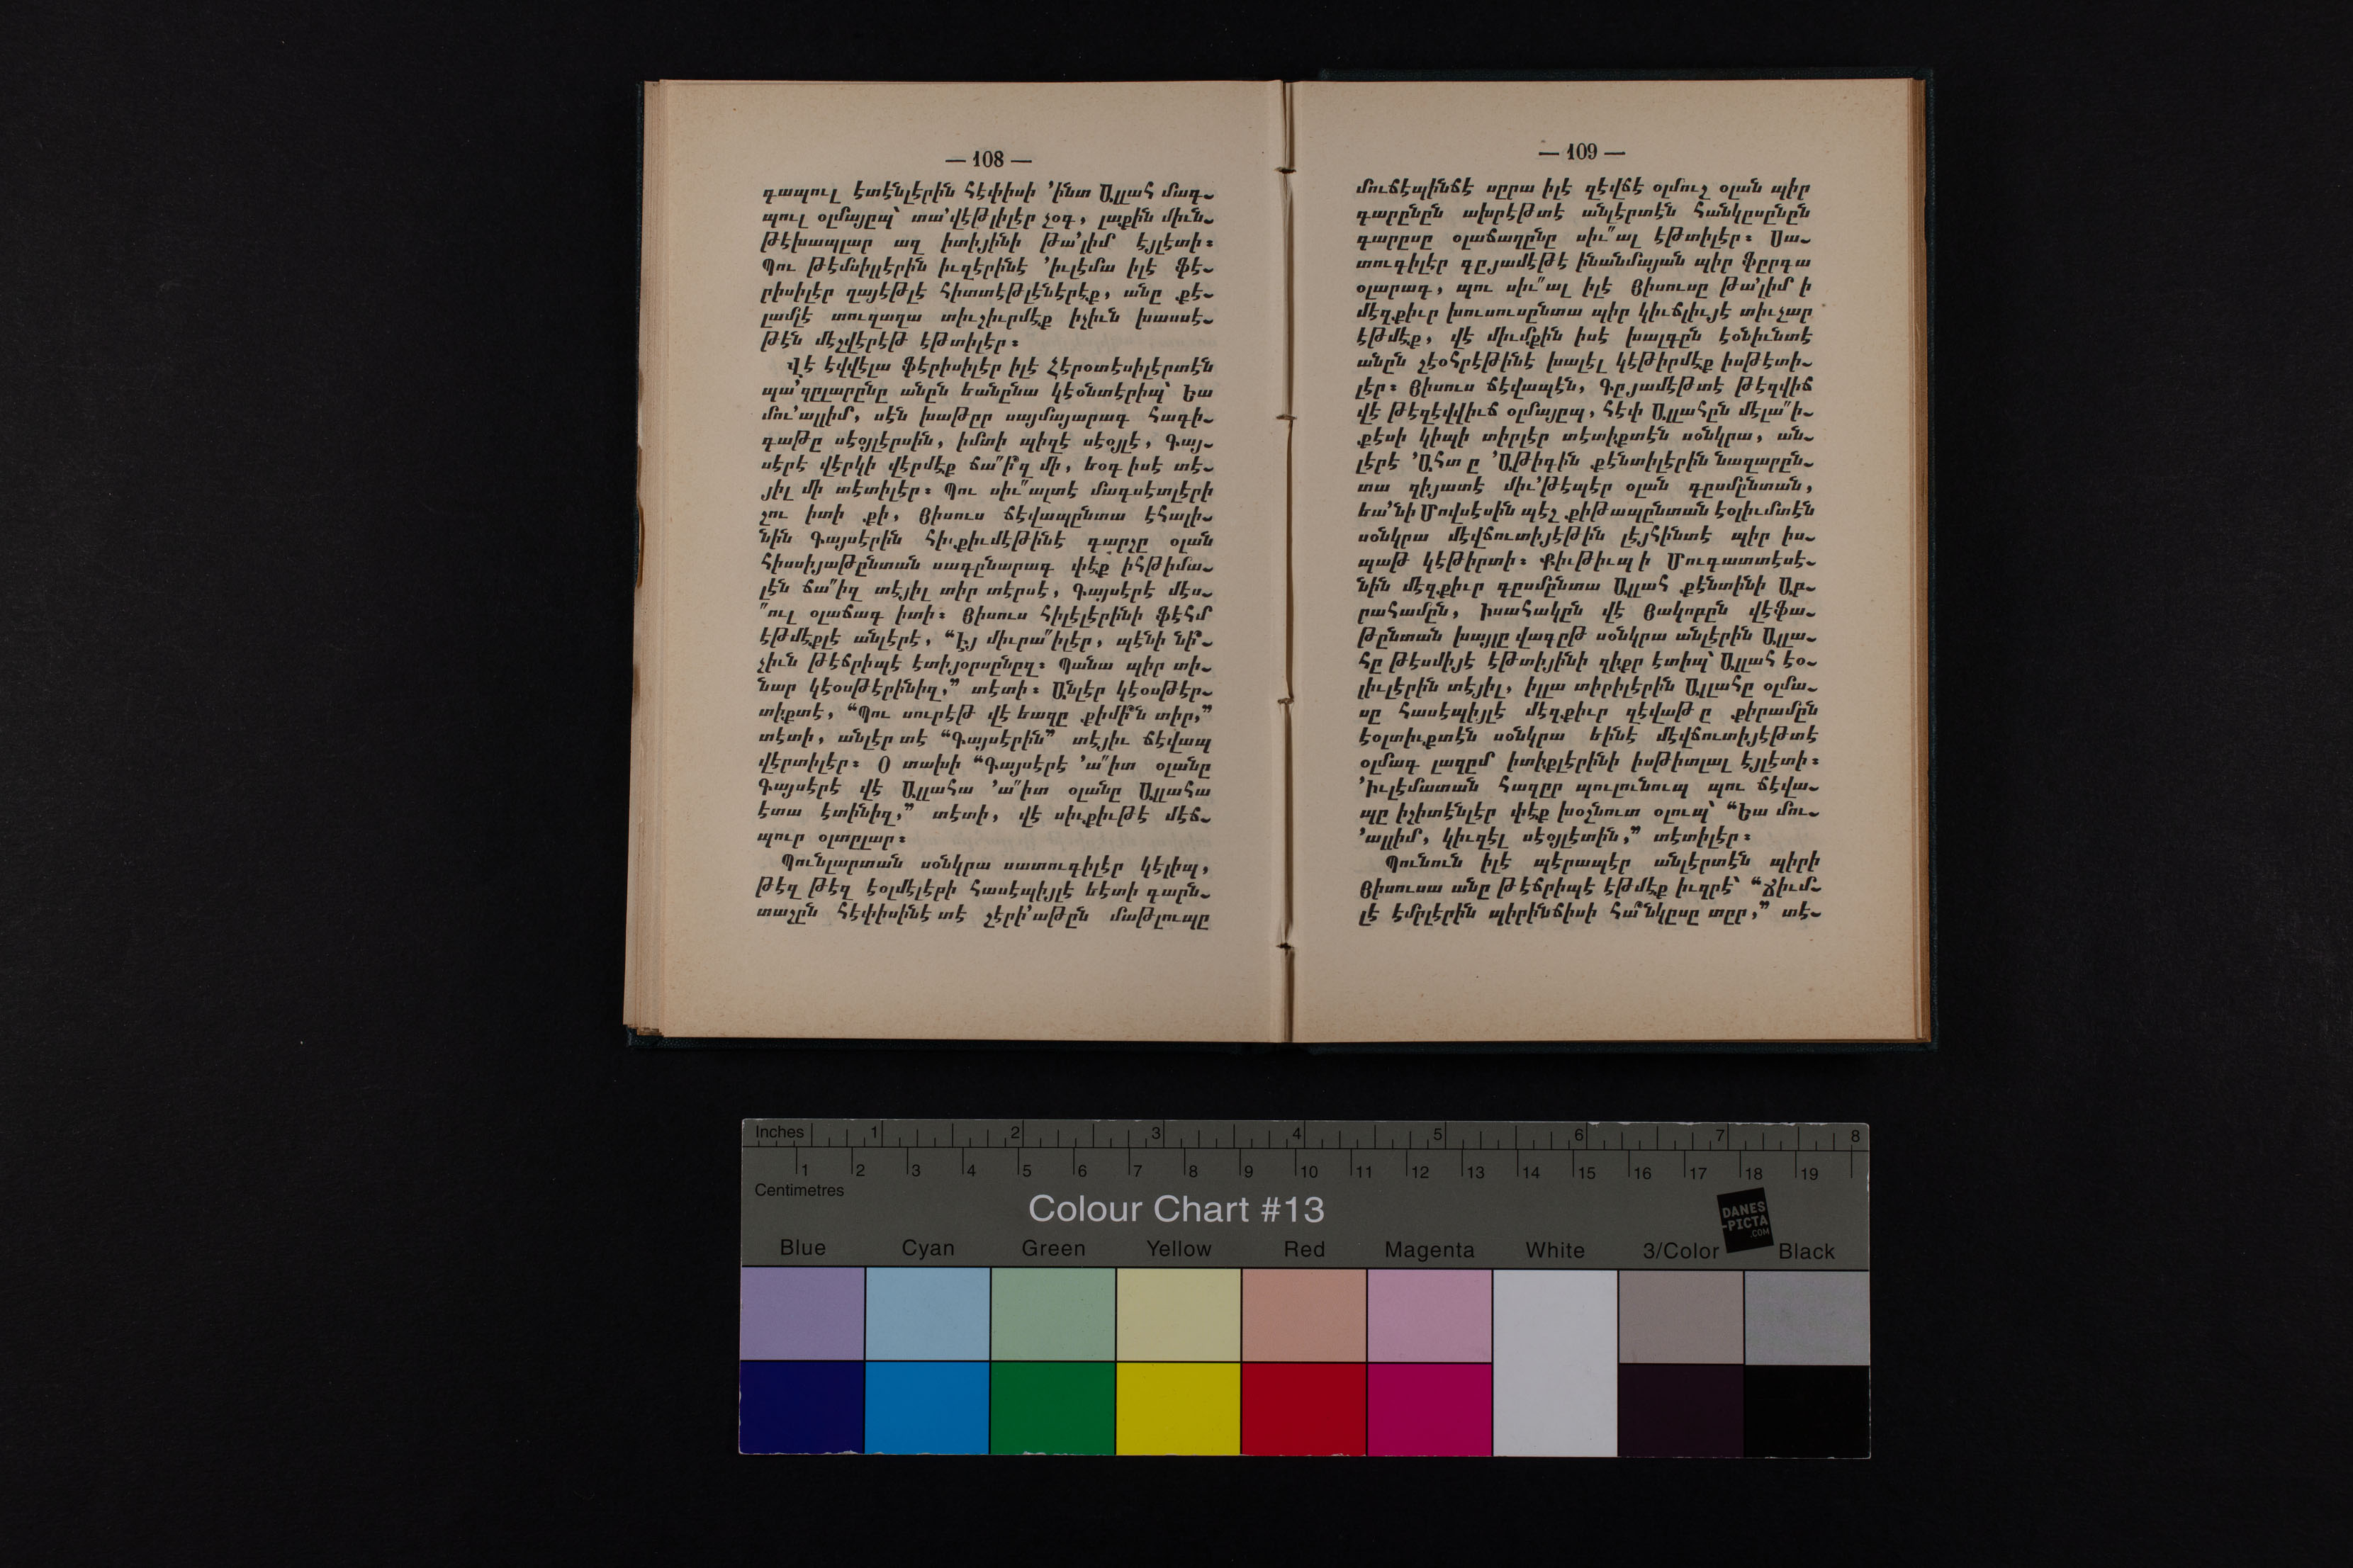 — 108 —
գապուլ էտէնլէրին հէփիսի ՚ինտ Ալլահ մագ֊
պուլ օլմայըպ՝ տա՚վէթլիլէր չօգ, լաքին միւն֊
թէխապլար աղ իտիյինի թա՚լիմ էյլէտի։
Պու թէմսիլլէրին իւզէրինէ ՚իւլէմա իլէ ֆէ֊
րիսիլէր ղայէթլէ հիտտէթլէնէրէք, անը քէ֊
լամլէ տուզաղա տիւշիւրմէք իչիւն խասսէ֊
թէն մէշվէրէթ էթտիլէր։
Վէ էվվէլա ֆէրիսիլէր իլէ Հէրօտէսիլէրտէն
պա՚զըլարընը անըն եանընա կէօնտէրիպ՝ Եա
մու՚ալլիմ, սէն խաթըր սայմայարագ հագի֊
գաթը սէօյլէրսին, իմտի պիզէ սէօյլէ, Գայ֊
սէրէ վէրկի վէրմէք ճա՞իզ մի, եօգ իսէ տէ֊
յիլ մի տէտիլէր։ Պու սիւ՞ալտէ մագսէտլէրի
շու իտի քի, Յիսուս ճէվապընտա էհալի֊
նին Գայսէրին հիւքիւմէթինէ գարշը օլան
հիսսիյաթընտան սագընարագ փէք իհթիմա֊
լէն ճա՞իզ տէյիլ տիր տէրսէ, Գայսէրէ մէս֊
՞ուլ օլաճագ իտի։ Յիսուս հիլէլէրինի ֆէհմ
էթմէքլէ անլէրէ, “Էյ միւրա՞իլէր, պէնի նի՞֊
չիւն թէճրիպէ էտիյօրսընըզ։ Պանա պիր տի֊
նար կէօսթէրինիզ,” տէտի։ Անլէր կէօսթէր֊
տիքտէ, “Պու սուրէթ վէ եազը քիմի՞ն տիր,”
տէտի, անլէր տէ “Գայսէրին” տէյիւ ճէվապ
վէրտիլէր։ Օ տախի “Գայսէրէ ՚ա՞իտ օլանը
Գայսէրէ վէ Ալլահա ՚ա՞իտ օլանը Ալլահա
էտա էտինիզ,” տէտի, վէ սիւքիւթէ մէճ֊
պուր օլտըլար։
Պունլարտան սօնկրա սատուգիլէր կէլիպ,
թէզ թէզ էօլմէլէրի հասէպիյլէ եէտի գարն֊
տաշըն հէփիսինէ տէ շէրի՚աթըն մաթլուպը
— 109 —
մուճէպինճէ սըրա իլէ զէվճէ օլմուշ օլան պիր
գարընըն ախրէթտէ անլէրտէն հանկըսընըն
գարըսը օլաճաղընը սիւ՞ալ էթտիլէր։ Սա֊
տուգիլէր գըյամէթէ ինանմայան պիր ֆըրգա
օլարագ, պու սիւ՞ալ իլէ Յիսուսը թա՚լիմ ի
մէզքիւր խուսուսընտա պիր կիւճլիւյէ տիւչար
էթմէք, վէ միւմքին իսէ խալգըն էօնիւնտէ
անըն շէօհրէթինէ խալէլ կէթիրմէք իսթէտի֊
լէր։ Յիսուս ճէվապէն, Գըյամէթտէ թէզվիճ
վէ թէզէվվիւճ օլմայըպ, հէփ Ալլահըն մէլա՞ի֊
քէսի կիպի տիրլէր տէտիքտէն սօնկրա, ան֊
լէրէ ՚Ահտ ը ՚Աթիգին քէնտիլէրին նազարըն֊
տա զիյատէ միւ՚թէպէր օլան գըսմընտան,
եա՚նի Մովսէսին պէշ քիթապընտան էօլիւմտէն
սօնկրա մէվճուտիյէթին լէյհինտէ պիր իս֊
պաթ կէթիրտի։ Քիւթիւպ ի Մուգատտէսէ֊
նին մէզքիւր գըսմընտա Ալլահ քէնտինի Աբ֊
րահամըն, Իսահակըն վէ Յակոբըն վէֆա֊
թընտան խայլը վագըթ սօնկրա անլէրին Ալլա֊
հը թէսմիյէ էթտիյինի զիքր էտիպ՝ Ալլահ էօ֊
լիւլէրին տէյիլ, իլլա տիրիլէրին Ալլահը օլմա֊
սը հասէպիյլէ մէզքիւր զէվաթ ը քիրամըն
էօլտիւքտէն սօնկրա եինէ մէվճուտիյէթտէ
օլմագ լազըմ իտիքլէրինի իսթիտլալ էյլէտի։
՚Իւլէմատան հազըր պուլունուպ պու ճէվա֊
պը իշիտէնլէր փէք խօշնուտ օլուպ՝ “Եա մու֊
՚ալլիմ, կիւզէլ սէօյլէտին,” տէտիլէր։
Պունուն իլէ պէրապէր անլէրտէն պիրի
Յիսուսա անը թէճրիպէ էթմէք իւզրէ՝ “Ճիւմ֊
լէ էմրլէրին պիրինճիսի հա՞նկըսը տըր,” տէ֊
Inches 1 2 3 4 5 6 7 8
1 2 3 4 5 6 7 8 9 10 11 12 13 14 15 16 17 18 19
Centimetres
Colour Chart #13
DANES
-PICTA
.COM
Blue Cyan Green Yellow Red Magenta White 3/Color Black